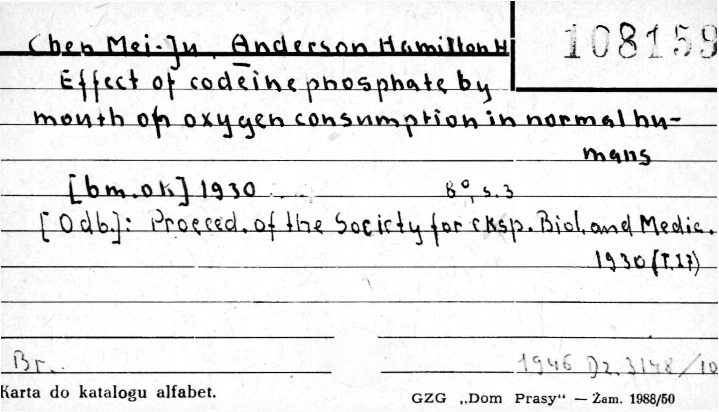 Chen Mei-Ju, Anderson Hamilton H 108159
Effect of codeine phosphate by
mouth on oxygen consumption in normal hu-
mans
[bm. ok] 1930 8°, s. 3
[Odb.]: Proceed. of the Society for eksp. Biol. and Medic.
1930 (T.27)
Br. 1946 Dz. 3148/10
Karta do katalogu alfabet.
GZG „Dom Prasy“ — Zam. 1988/50